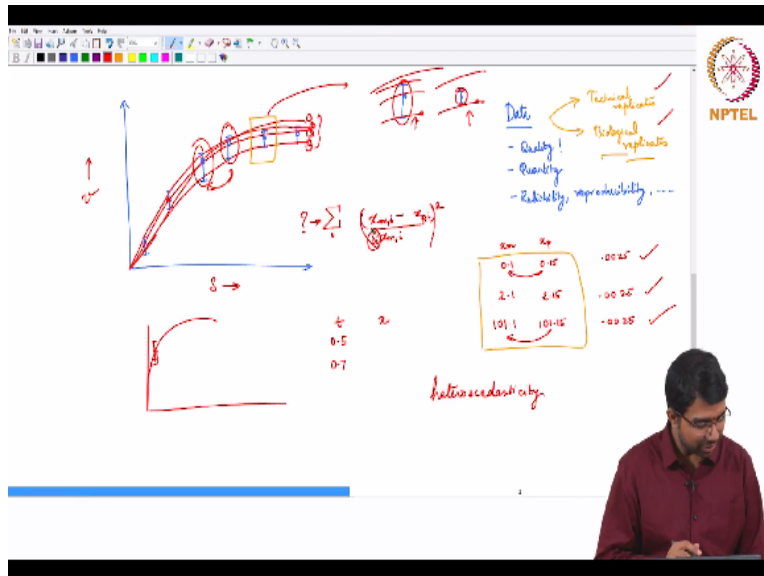 NPTEL
Data
Technical replicates
Biological replicates
- Quality!
- Quantity
- Reliability, reproducibility, ....
v
S →
? → ∑
i
x m,i - x p,i
2
x m,i
x m x p
0.1 0.15 .0025
2.1 2.15 .0025
101.1 101.15 .0025
t x
0.5
0.7
heteroscedasticity